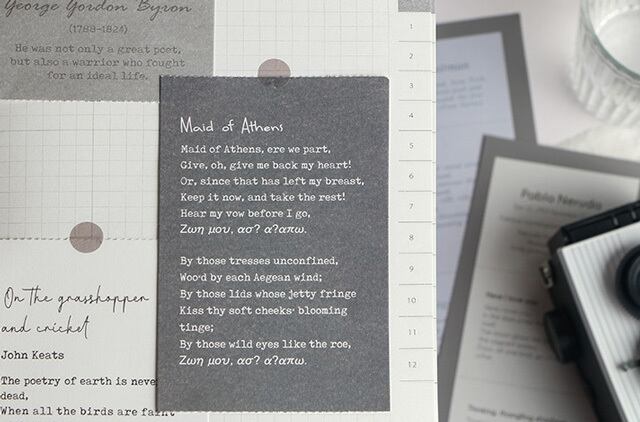 George Gordon Byron
(1788-1824)
He was not only a great poet,
but also a warrior who fought
for an ideal life.
Maid of Athens
Maid of Athens, ere we part,
Give, oh, give me back my heart!
Or, since that has left my breast,
Keep it now, and take the rest!
Hear my vow before I go,
Ζωη μου, ασ? α?απω.
By those tresses unconfined,
Woo'd by each Aegean wind;
By those lids whose jetty fringe
Kiss thy soft cheeks' blooming
tinge;
By those wild eyes like the roe,
Ζωη μου, ασ? α?απω.
On the grasshopper
and cricket
John Keats
The poetry of earth is neve
dead,
When all the birds are faint
1
2
3
4
5
6
7
8
9
10
11
12
Pablo Neruda